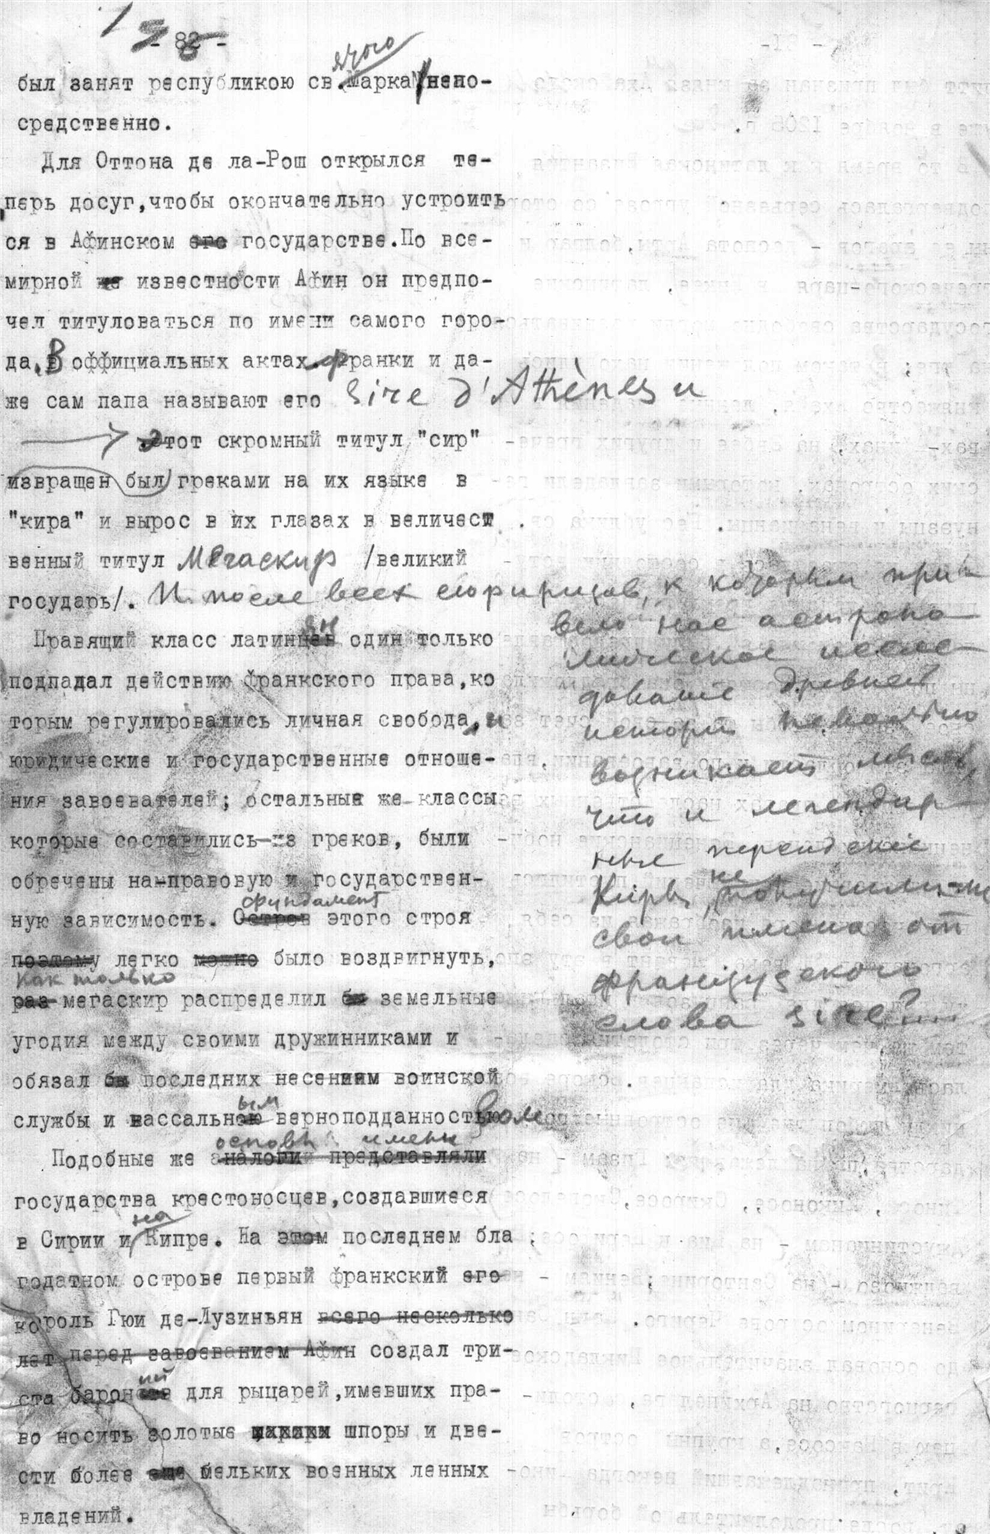 - 82 -
был занят республикою св. Марка непо-
средственно.
Для Оттона де ла-Рош открылся те-
перь досуг,чтобы окончательно устроить
ся в Афинском его государстве.По все-
мирной же известности Афин он предпо-
чел титуловаться по имени самого горо-
да. В оффициальных актах франки и да-
же сам папа называют его Sire d'Athènes и
этот скромный титул "сир"
извращен был греками на их языке в
"кира" и вырос в их глазах в величест
венный титул Мегаскир /великий
государь/. И после всех сюрпризов, к которым при-
вело нас астроно-
мическое иссле-
дование древней
истории невольно
возникает мысль,
что и легендар-
ные персидские
Киры не получили-ли
свои имена от
французского
слова sire?...
Правящий класс латинян один только
подпадал действию франкского права,ко
торым регулировались личная свобода, и
юридические и государственные отноше-
ния завоевателей; остальные же классы
которые составились из греков, были
обречены на правовую и государствен-
фундамент
ную зависимость. Остров этого строя
поэтому легко можно было воздвигнуть,
как только
раз мегаскир распределил бы земельные
угодия между своими дружинниками и
обязал бы последних несением воинской
службы и вассальным верноподданством
основы имели
Подобные же аналогии представляли
государства крестоносцев,создавшиеся
на
в Сирии и Кипре. На этом последнем бла
годатном острове первый франкский его
король Гюи де-Лузиньян всего несколько
лет перед завоеванием Афин создал три-
ста бароний для рыцарей,имевших пра-
во носить золотые шпоры и две-
сти более еще мелких военных ленных
владений.